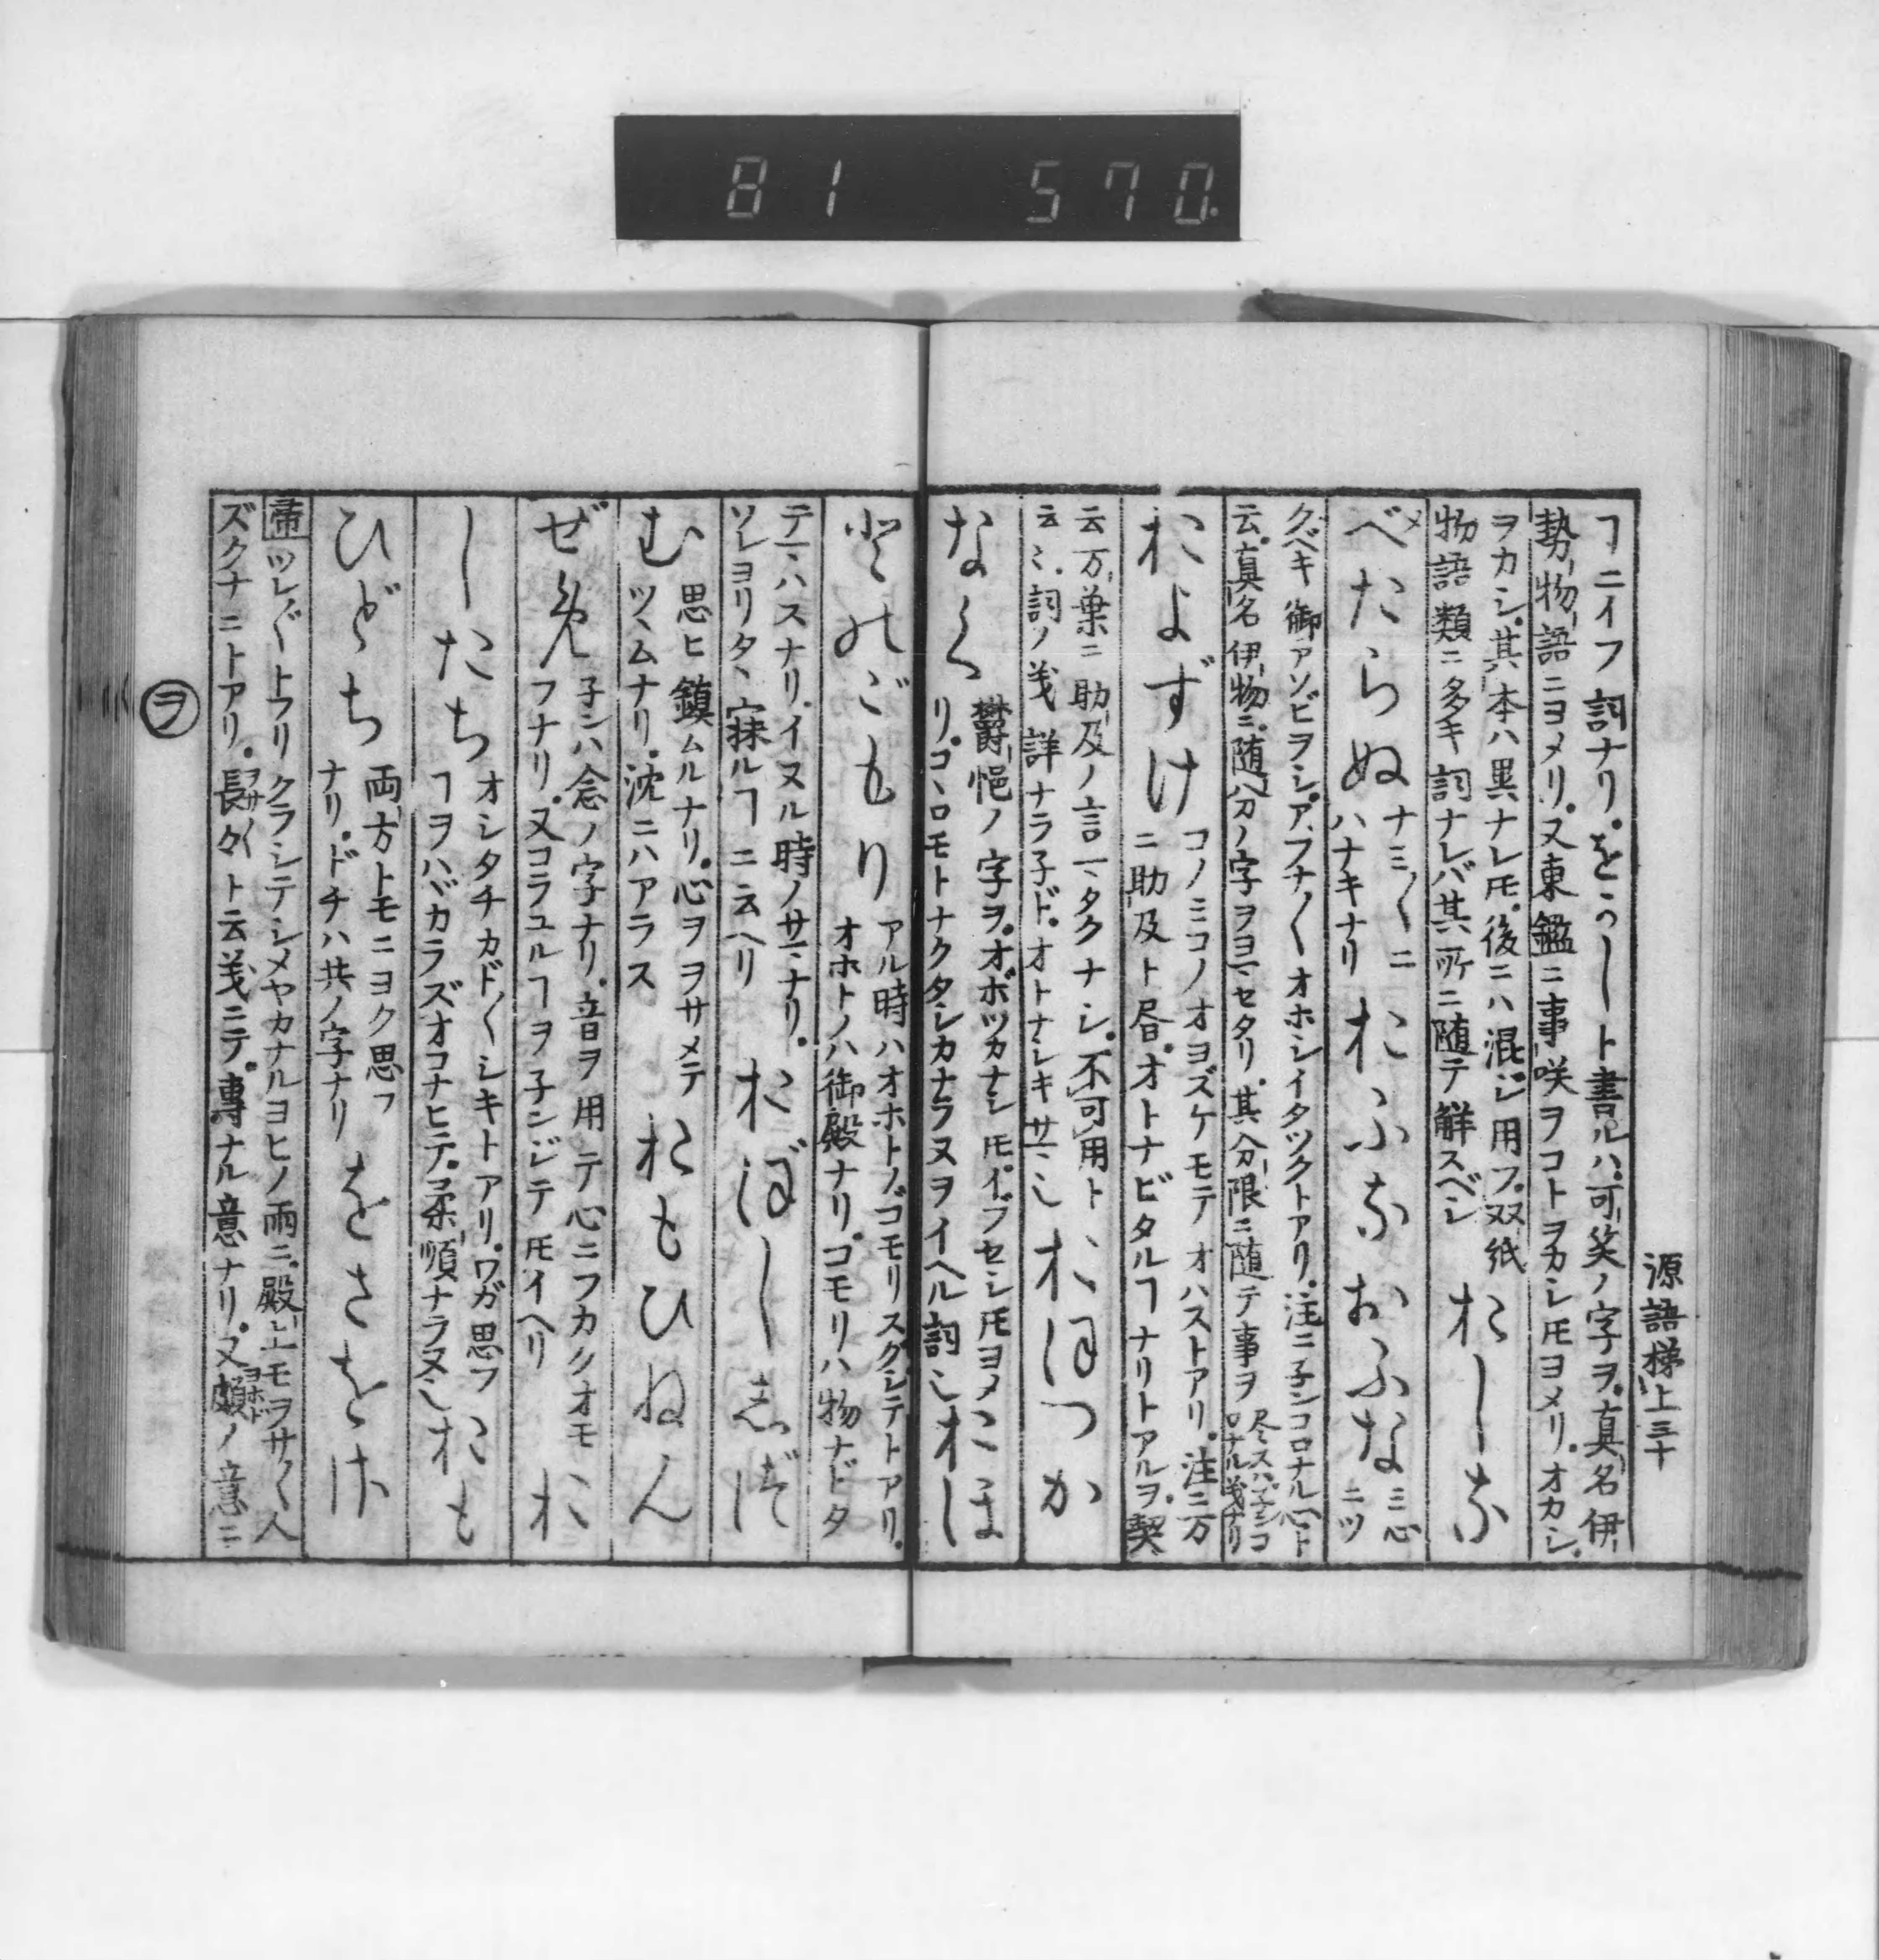 81 570
源語梯上三十
ヿニイフ詞ナリ。をかしト書ルハ。可笑ノ字ヲ。真名伊
勢物語ニヨメリ。又東鑑ニ事咲ヲコトヲカシ𪜈ヨメリ。オカシ。
ヲカシ。其本ハ異ナレ𪜈。後ニハ混ジ用フ。双紙
物語類ニ多キ詞ナレバ其所ニ随テ解スベシ
おしな
べたらぬ
ナミ〳〵ニ
ハナキナリ
おふなおふな
ミ心
ニツ
クベキ御アソビヲシ。アフナ〳〵オホシイタツクトアリ。注ニ子ンコロナル心ト
云。真名伊物ニ。随分ノ字ヲヨマセタリ。其分限ニ随テ事ヲ
尽スハ子ンコ
ロナル義ナリ
およずけ
コノミコノオヨズケモテオハストアリ。注ニ万
ニ助及ト居。オトナビタルヿナリトアルヲ。契
云万葉ニ助及ノ言マタクナシ。不可用ト
云々。詞ノ義詳ナラ子ド。オトナシキサマ也
おほつか
なく
欝悒ノ字ヲ。オボツカナシ𪜈。イブセシ𪜈ヨメ
リ。コヽロモトナクタシカナラヌヲイヘル詞也
おほし
とのごもり
アル時ハオホトノゴモリスグシテトアリ。
オホトノハ御殿ナリ。コモリハ物ナドタ
テマハスナリ。イヌル時ノサマナリ。
ソレヨリタヽ寐ルヿニ云ヘリ
おぼししづ
む
思ヒ鎮ムルナリ。心ヲヲサメテ
ツヽムナリ。沈ニハアラス
おもひねん
ぜ
子ンハ念ノ字ナリ。音ヲ用テ心ニフカクオモ
フナリ。又コラユルヿヲ子ンジテ𪜈イヘリ
お
したち
オシタチカド〳〵シキトアリ。ワガ思フ
ヿヲハバカラズオコナヒテ。柔順ナラヌ也
おも
ひどち
両方トモニヨク思フ
ナリ。ドチハ共ノ字ナリ
をさをさ
帚ツレ〴〵トフリクラシテシメヤカナルヨヒノ雨ニ。殿上モヲサ〳〵人
ズクナニトアリ。長々ト云義ニテ。専ナル意ナリ。又頗ノ意ニ
ヲサ〳〵
ヨホド
ヲ